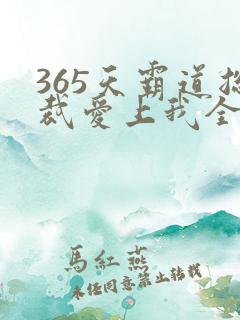 365天霸道总
裁爱上我全
馬紅燕
未经同意禁止转载